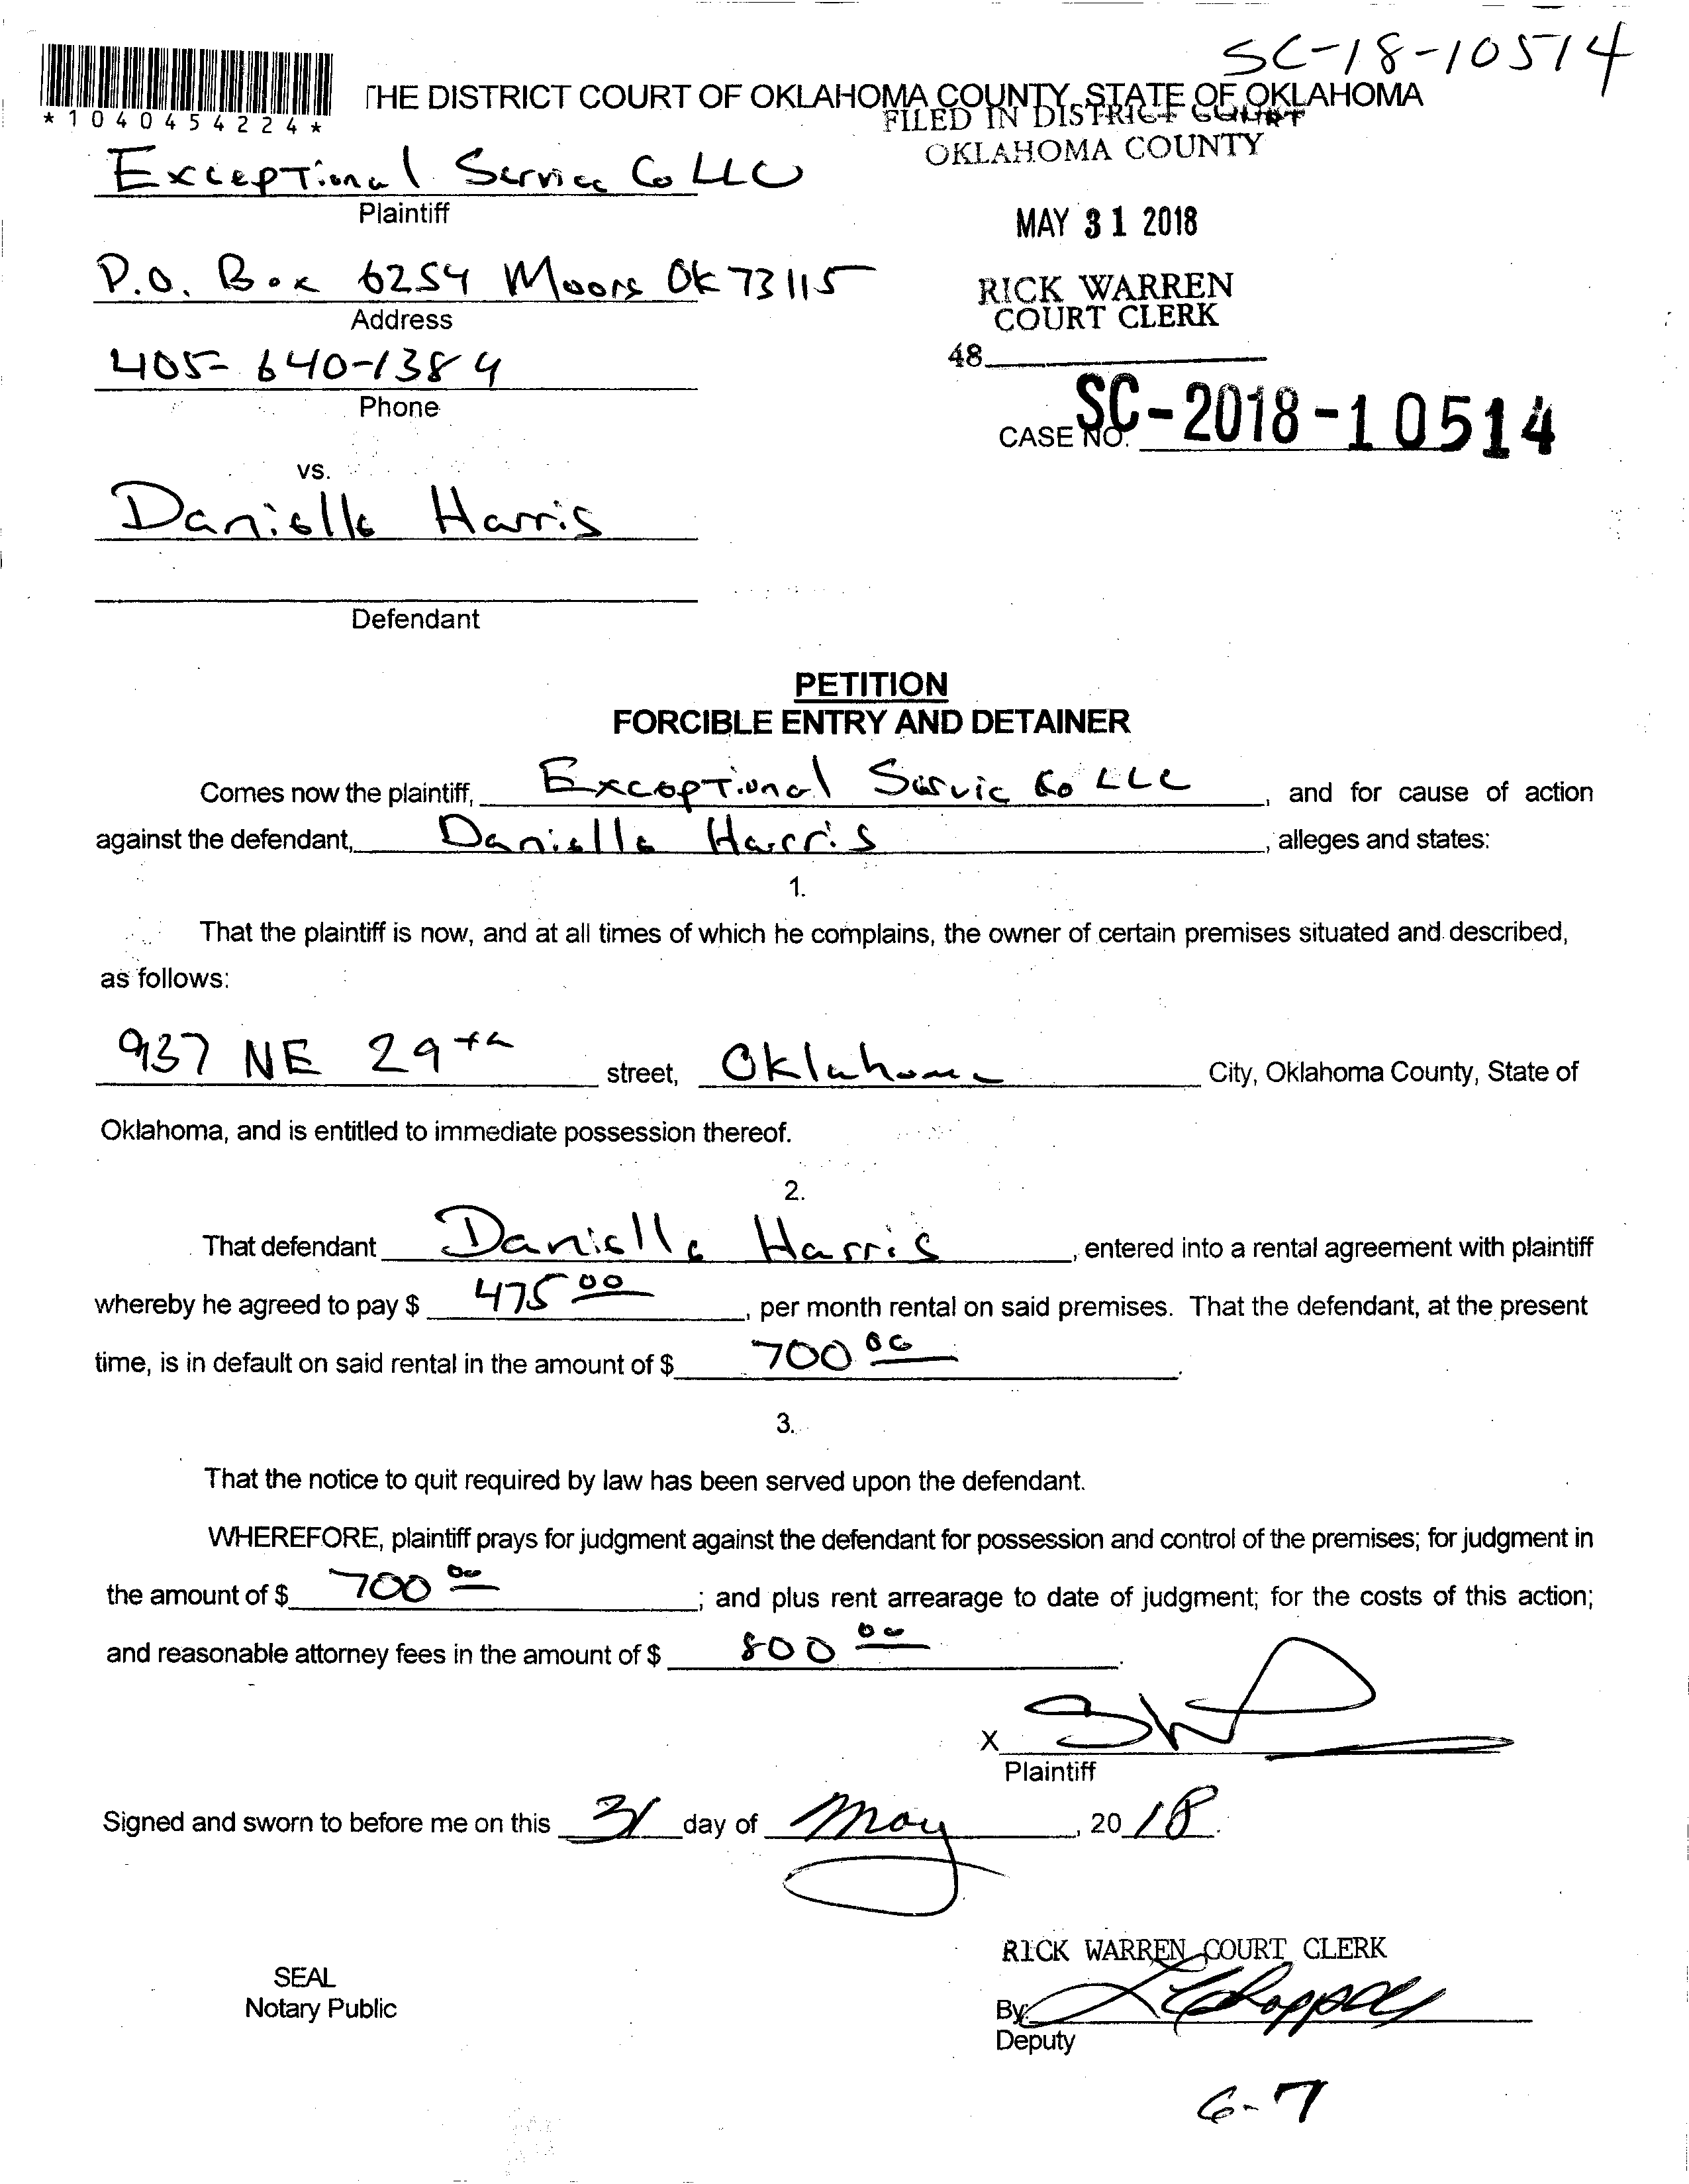 SC-18-10514
THE DISTRICT COURT OF OKLAHOMA COUNTY, STATE OF OKLAHOMA
*1040454224*
FILED IN DISTRICT COURT
OKLAHOMA COUNTY
Exceptional Service Co LLC
Plaintiff
MAY 31 2018
P.O. Box 6254 Moore Ok 73115
Address
RICK WARREN
COURT CLERK
405-640-1384
Phone
48
CASE NO. SC-2018-10514
vs.
Danielle Harris
Defendant
PETITION
FORCIBLE ENTRY AND DETAINER
Comes now the plaintiff, Exceptional Servic Co LLC, and for cause of action
against the defendant, Danielle Harris, alleges and states:
1.
That the plaintiff is now, and at all times of which he complains, the owner of certain premises situated and described,
as follows:
937 NE 29th street, Oklahoma City, Oklahoma County, State of
Oklahoma, and is entitled to immediate possession thereof.
2.
That defendant Danielle Harris, entered into a rental agreement with plaintiff
whereby he agreed to pay $ 475 00, per month rental on said premises. That the defendant, at the present
time, is in default on said rental in the amount of $ 700 00.
3.
That the notice to quit required by law has been served upon the defendant.
WHEREFORE, plaintiff prays for judgment against the defendant for possession and control of the premises; for judgment in
the amount of $ 700 00; and plus rent arrearage to date of judgment; for the costs of this action;
and reasonable attorney fees in the amount of $ 800 00.
X
Plaintiff
Signed and sworn to before me on this 31 day of May, 2018.
RICK WARREN COURT CLERK
SEAL
Notary Public
By:
Deputy
6-7